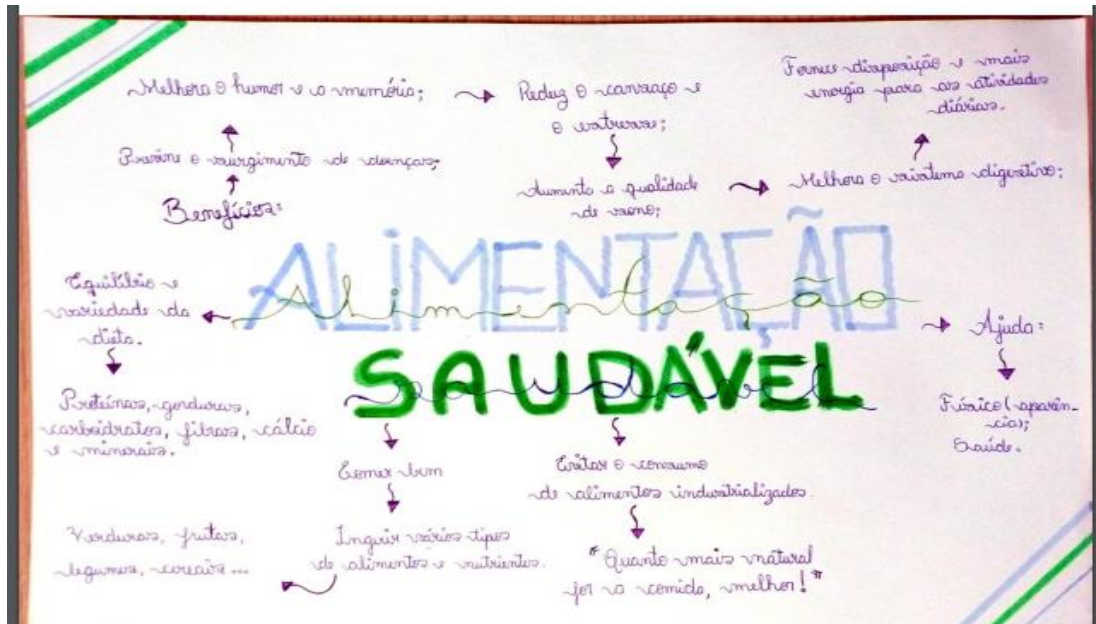 Melhora o humor e a memória;
Previne o surgimento de doenças;
Benefícios:
Reduz o cansaço e
o estresse;
Aumenta a qualidade
de sono;
Fornece disposição e mais
energia para as atividades
diárias.
Melhora o sistema digestivo;
ALIMENTAÇÃO
Alimentação
SAUDÁVEL
saudável
Equilíbrio e
variedade da
dieta.
Proteínas, gorduras,
carboidratos, fibras, cálcio
e minerais.
Comer bem
Ingerir vários tipos
de alimentos e nutrientes.
Verduras, frutas,
legumes, cereais...
Evitar o consumo
de alimentos industrializados.
"Quanto mais natural
for a comida, melhor!"
Ajuda:
Físico (aparên-
cia);
Saúde.